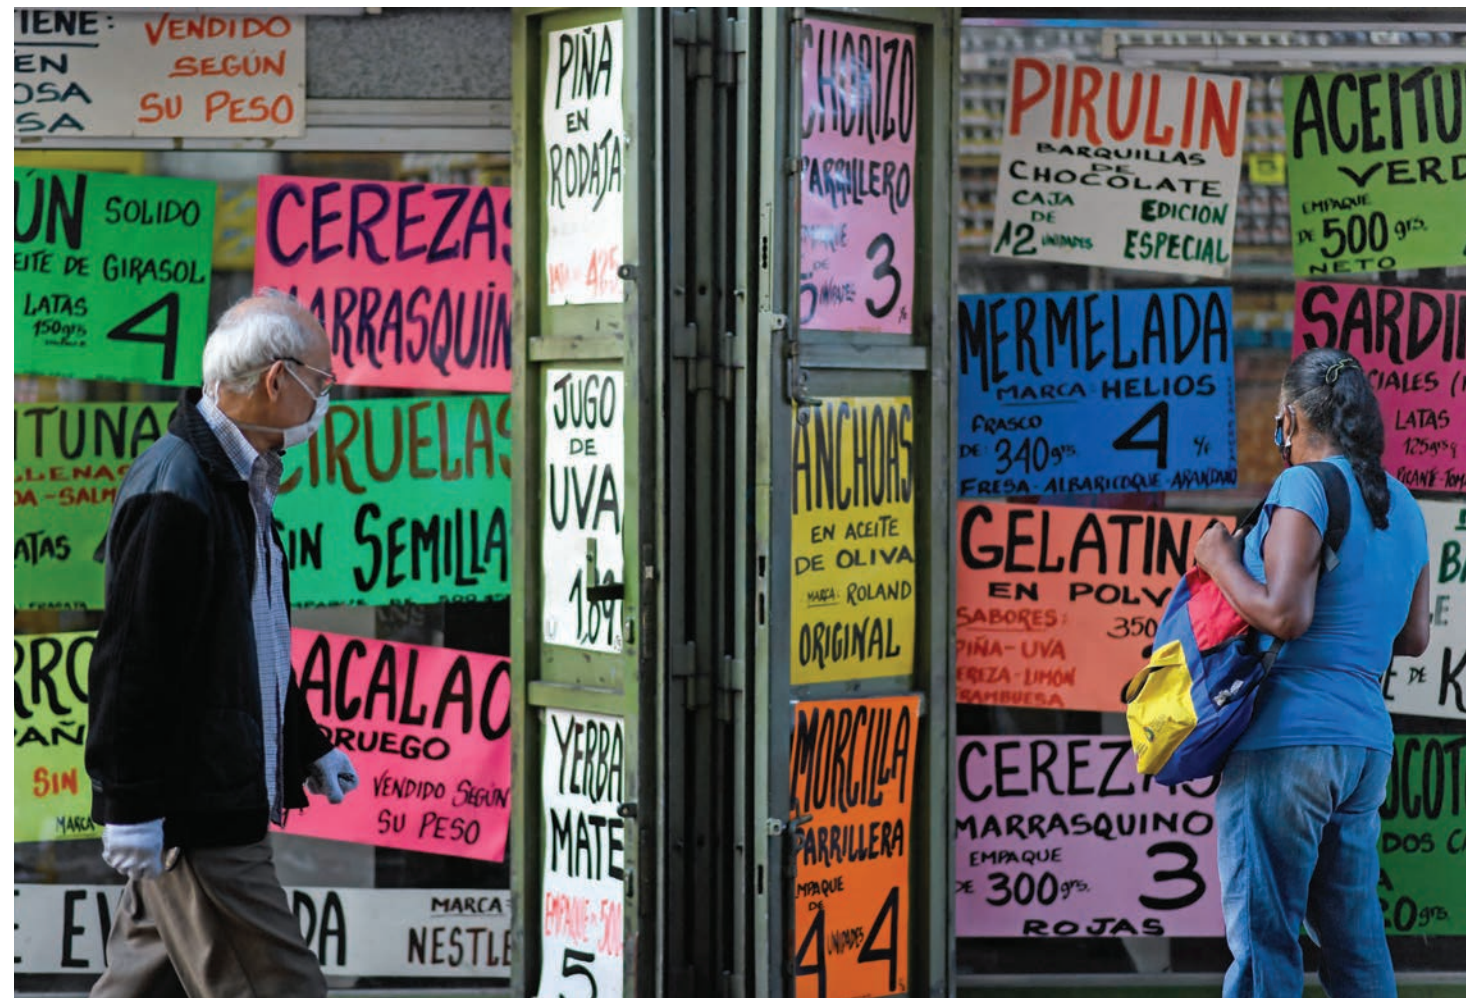 VENDIDO
SEGÚN
SU PESO
SOLIDO
DE GIRASOL
LATAS
150grs
4
CEREZAS
MARRASQUIN
CIRUELAS
SIN SEMILLA
LATAS
SIN
MARCA
ACALAO
VENDIDO SEGÚN
SU PESO
MARCA
NESTLE
PIÑA
EN
RODAJA
JUGO
DE
UVA
1,89
YERBA
MATE
EMPAQUE 500
5
CHORIZO
PARRILLERO
EMPAQUE
DE
3
ANCHOAS
EN ACEITE
DE OLIVA
MARCA: ROLAND
ORIGINAL
MORCILLA
PARRILLERA
EMPAQUE
DE
4 UNIDADES 4
PIRULIN
BARQUILLAS
DE
CHOCOLATE
CAJA
DE
12 UNIDADES
EDICION
ESPECIAL
ACEITU
VERD
EMPAQUE
DE 500 grs.
NETO
MERMELADA
MARCA HELIOS
FRASCO
DE: 340grs. 4 %
FRESA-ALBARICOQUE-ARANDANO
SARDI
CIALES
LATAS
125grs
PICANTE-TOM
GELATIN
EN POLV
SABORES: 350
PIÑA-UVA
CEREZA-LIMON
FRAMBUESA
CEREZAS
MARRASQUINO
EMPAQUE
DE 300grs. 3
ROJAS
DE K
COT
DOS
0grs.